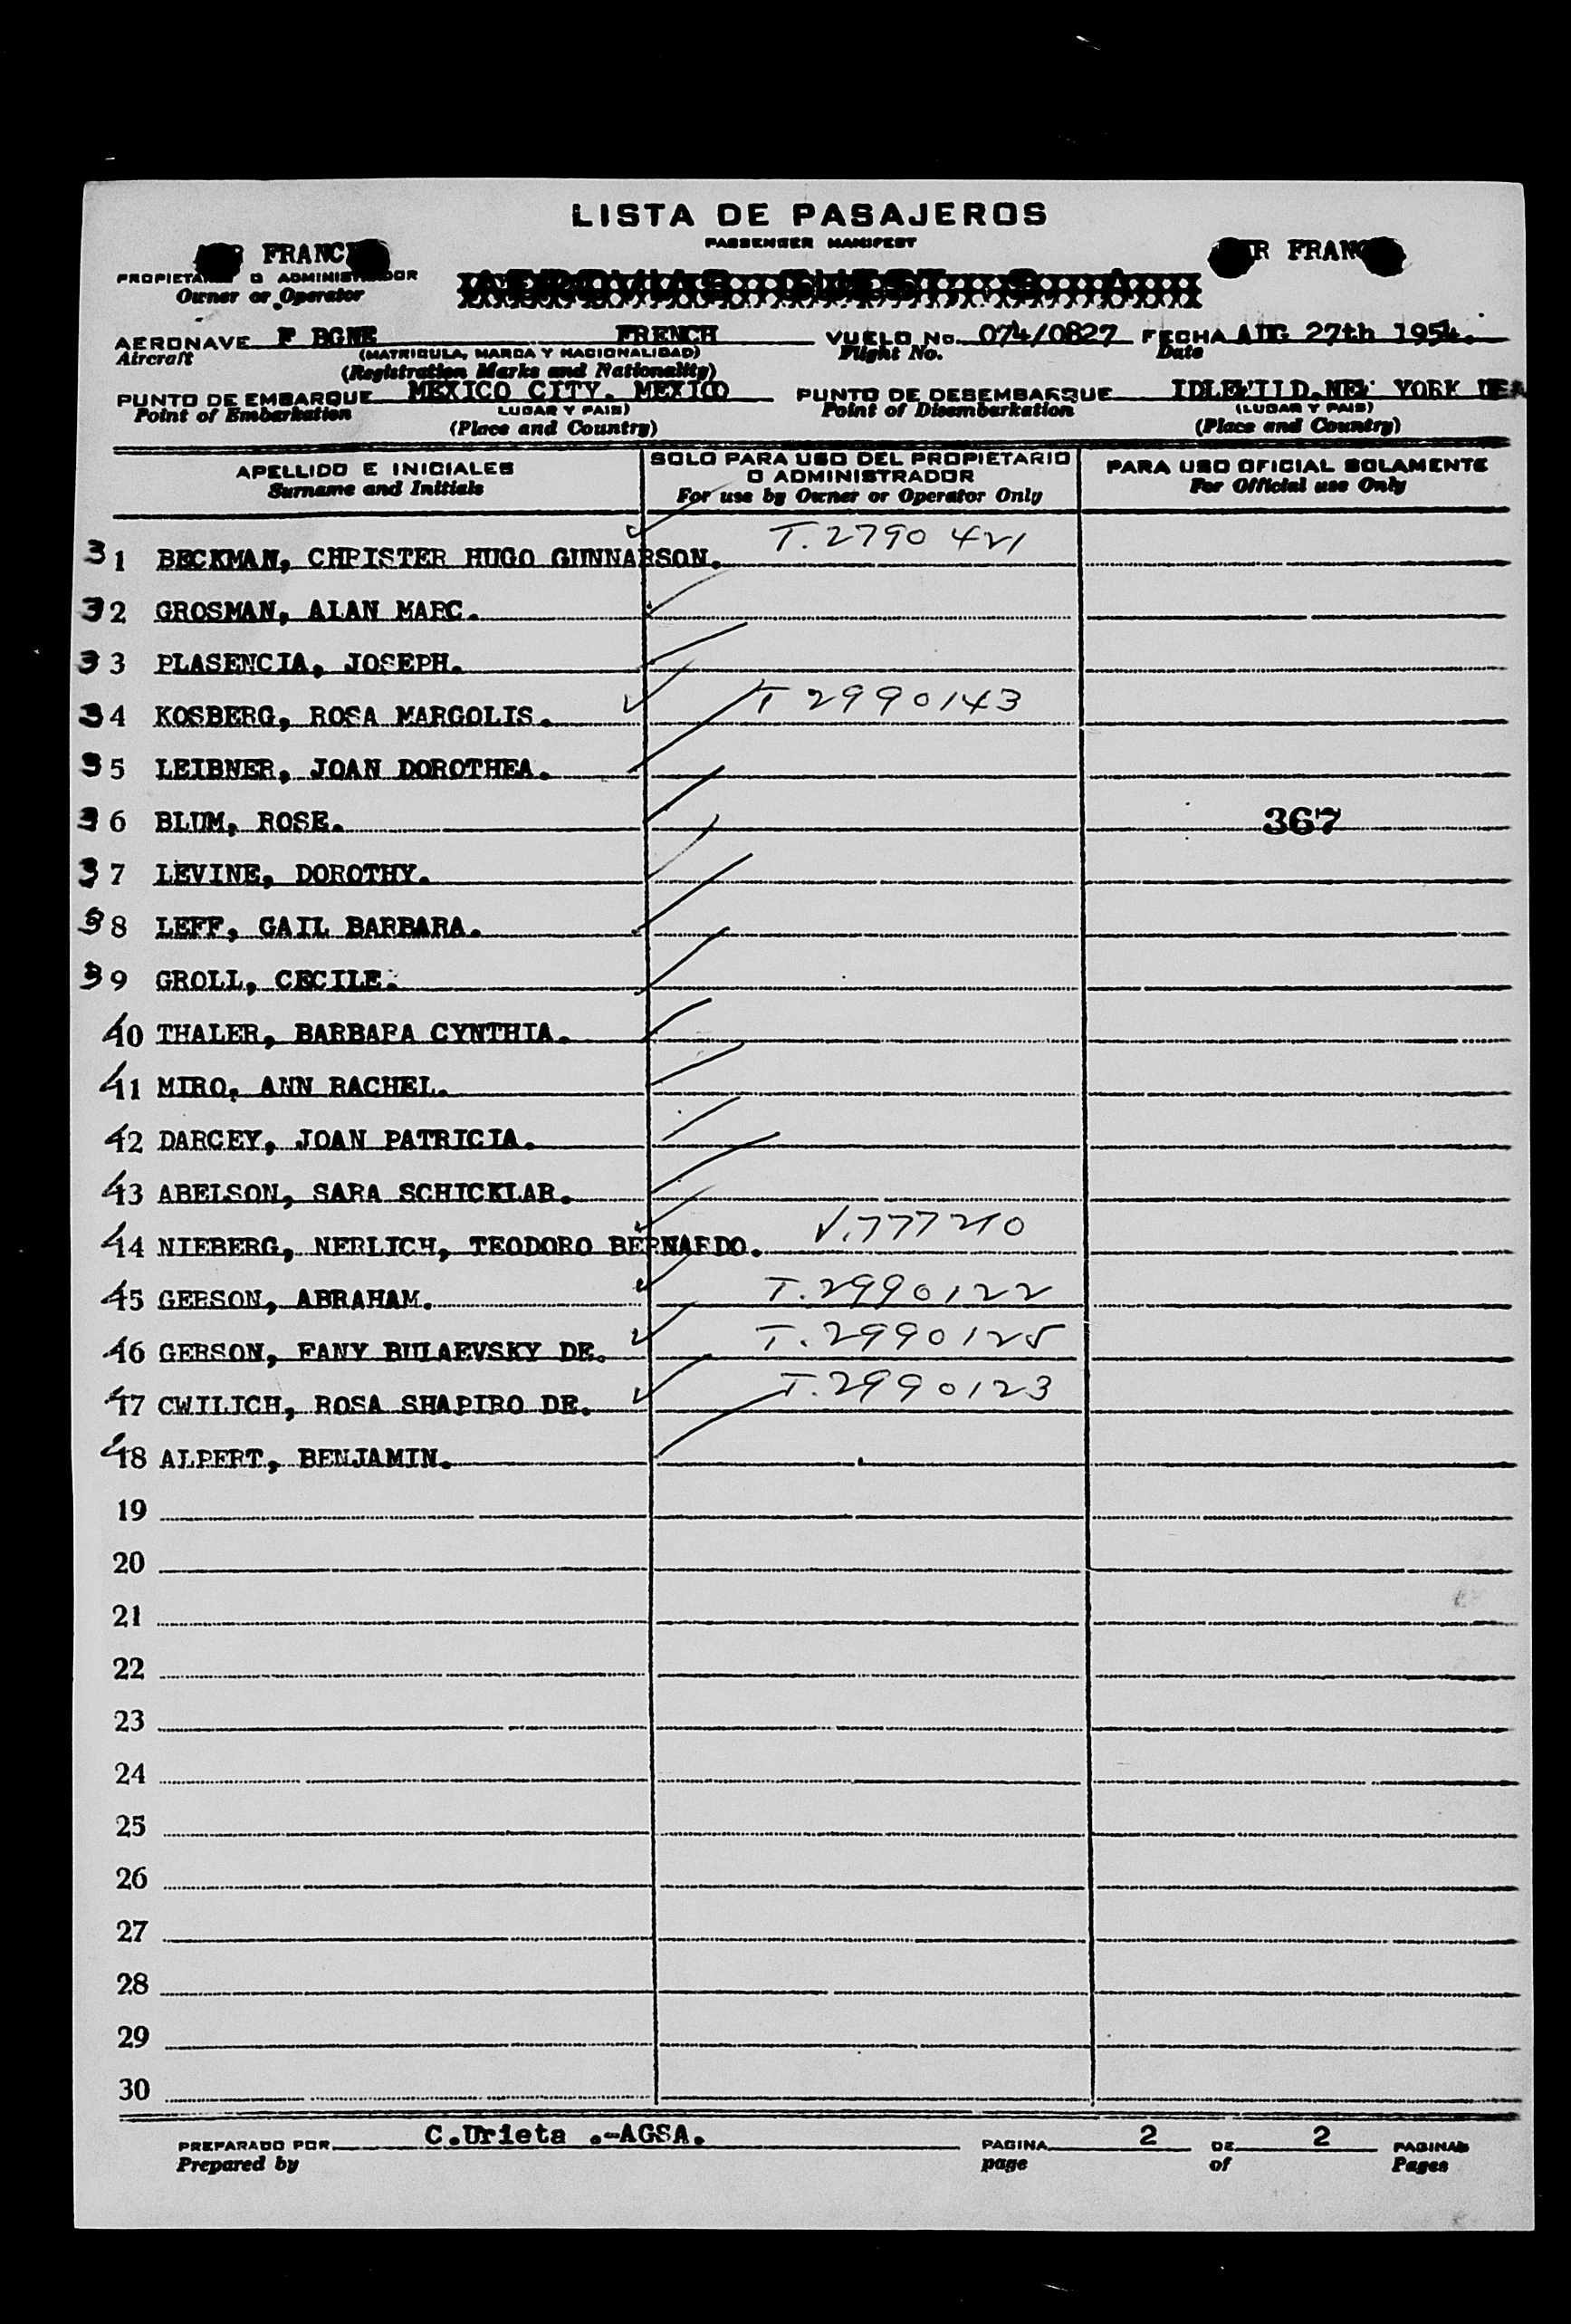 LISTA DE PASAJEROS
PASSENGER MANIFEST
FRANC
R FRAN
PROPIETA O ADMINIST DOR
Owner or Operator
AEROVIAS GUEST, S. A.
AERONAVE F BGNE FRENCH VUELO No. 074/0827 FECHA AUG 27th 1954.
Aircraft (MATRICULA, MARCA Y NACIONALIDAD) Flight No. Date
(Registration Marks and Nationality)
PUNTO DE EMBARQUE MEXICO CITY. MEXICO PUNTO DE DESEMBARQUE IDLEWILD.NEW YORK USA
Point of Embarkation LUGAR Y PAIS) Point of Disembarkation (LUGAR Y PAIS)
(Place and Country) (Place and Country)
APELLIDO E INICIALES SOLO PARA USO DEL PROPIETARIO O ADMINISTRADOR PARA USO OFICIAL SOLAMENTE
Surname and Initials For use by Owner or Operator Only For Official use Only
31 BECKMAN, CHRISTER HUGO GUNNARSON. T.2790421
32 GROSMAN, ALAN MARC.
33 PLASENCIA, JOSEPH.
34 KOSBERG, ROSA MARGOLIS. T 2990143
35 LEIBNER, JOAN DOROTHEA.
36 BLUM, ROSE. 367
37 LEVINE, DOROTHY.
38 LEFF, GAIL BARBARA.
39 GROLL, CECILE.
40 THALER, BARBARA CYNTHIA.
41 MIRO, ANN RACHEL.
42 DARCEY, JOAN PATRICIA.
43 ABELSON, SARA SCHICKLAR.
44 NIEBERG, NERLICH, TEODORO BERNARDO. V.777210
45 GERSON, ABRAHAM. T.2990122
46 GERSON, FANY BULAEVSKY DE. T.2990125
47 CWILICH, ROSA SHAPIRO DE. T.2990123
48 ALPERT, BENJAMIN.
19
20
21
22
23
24
25
26
27
28
29
30
PREPARADO POR C.Urieta .-AGSA. PAGINA 2 DE 2 PAGINAS
Prepared by page of Pages